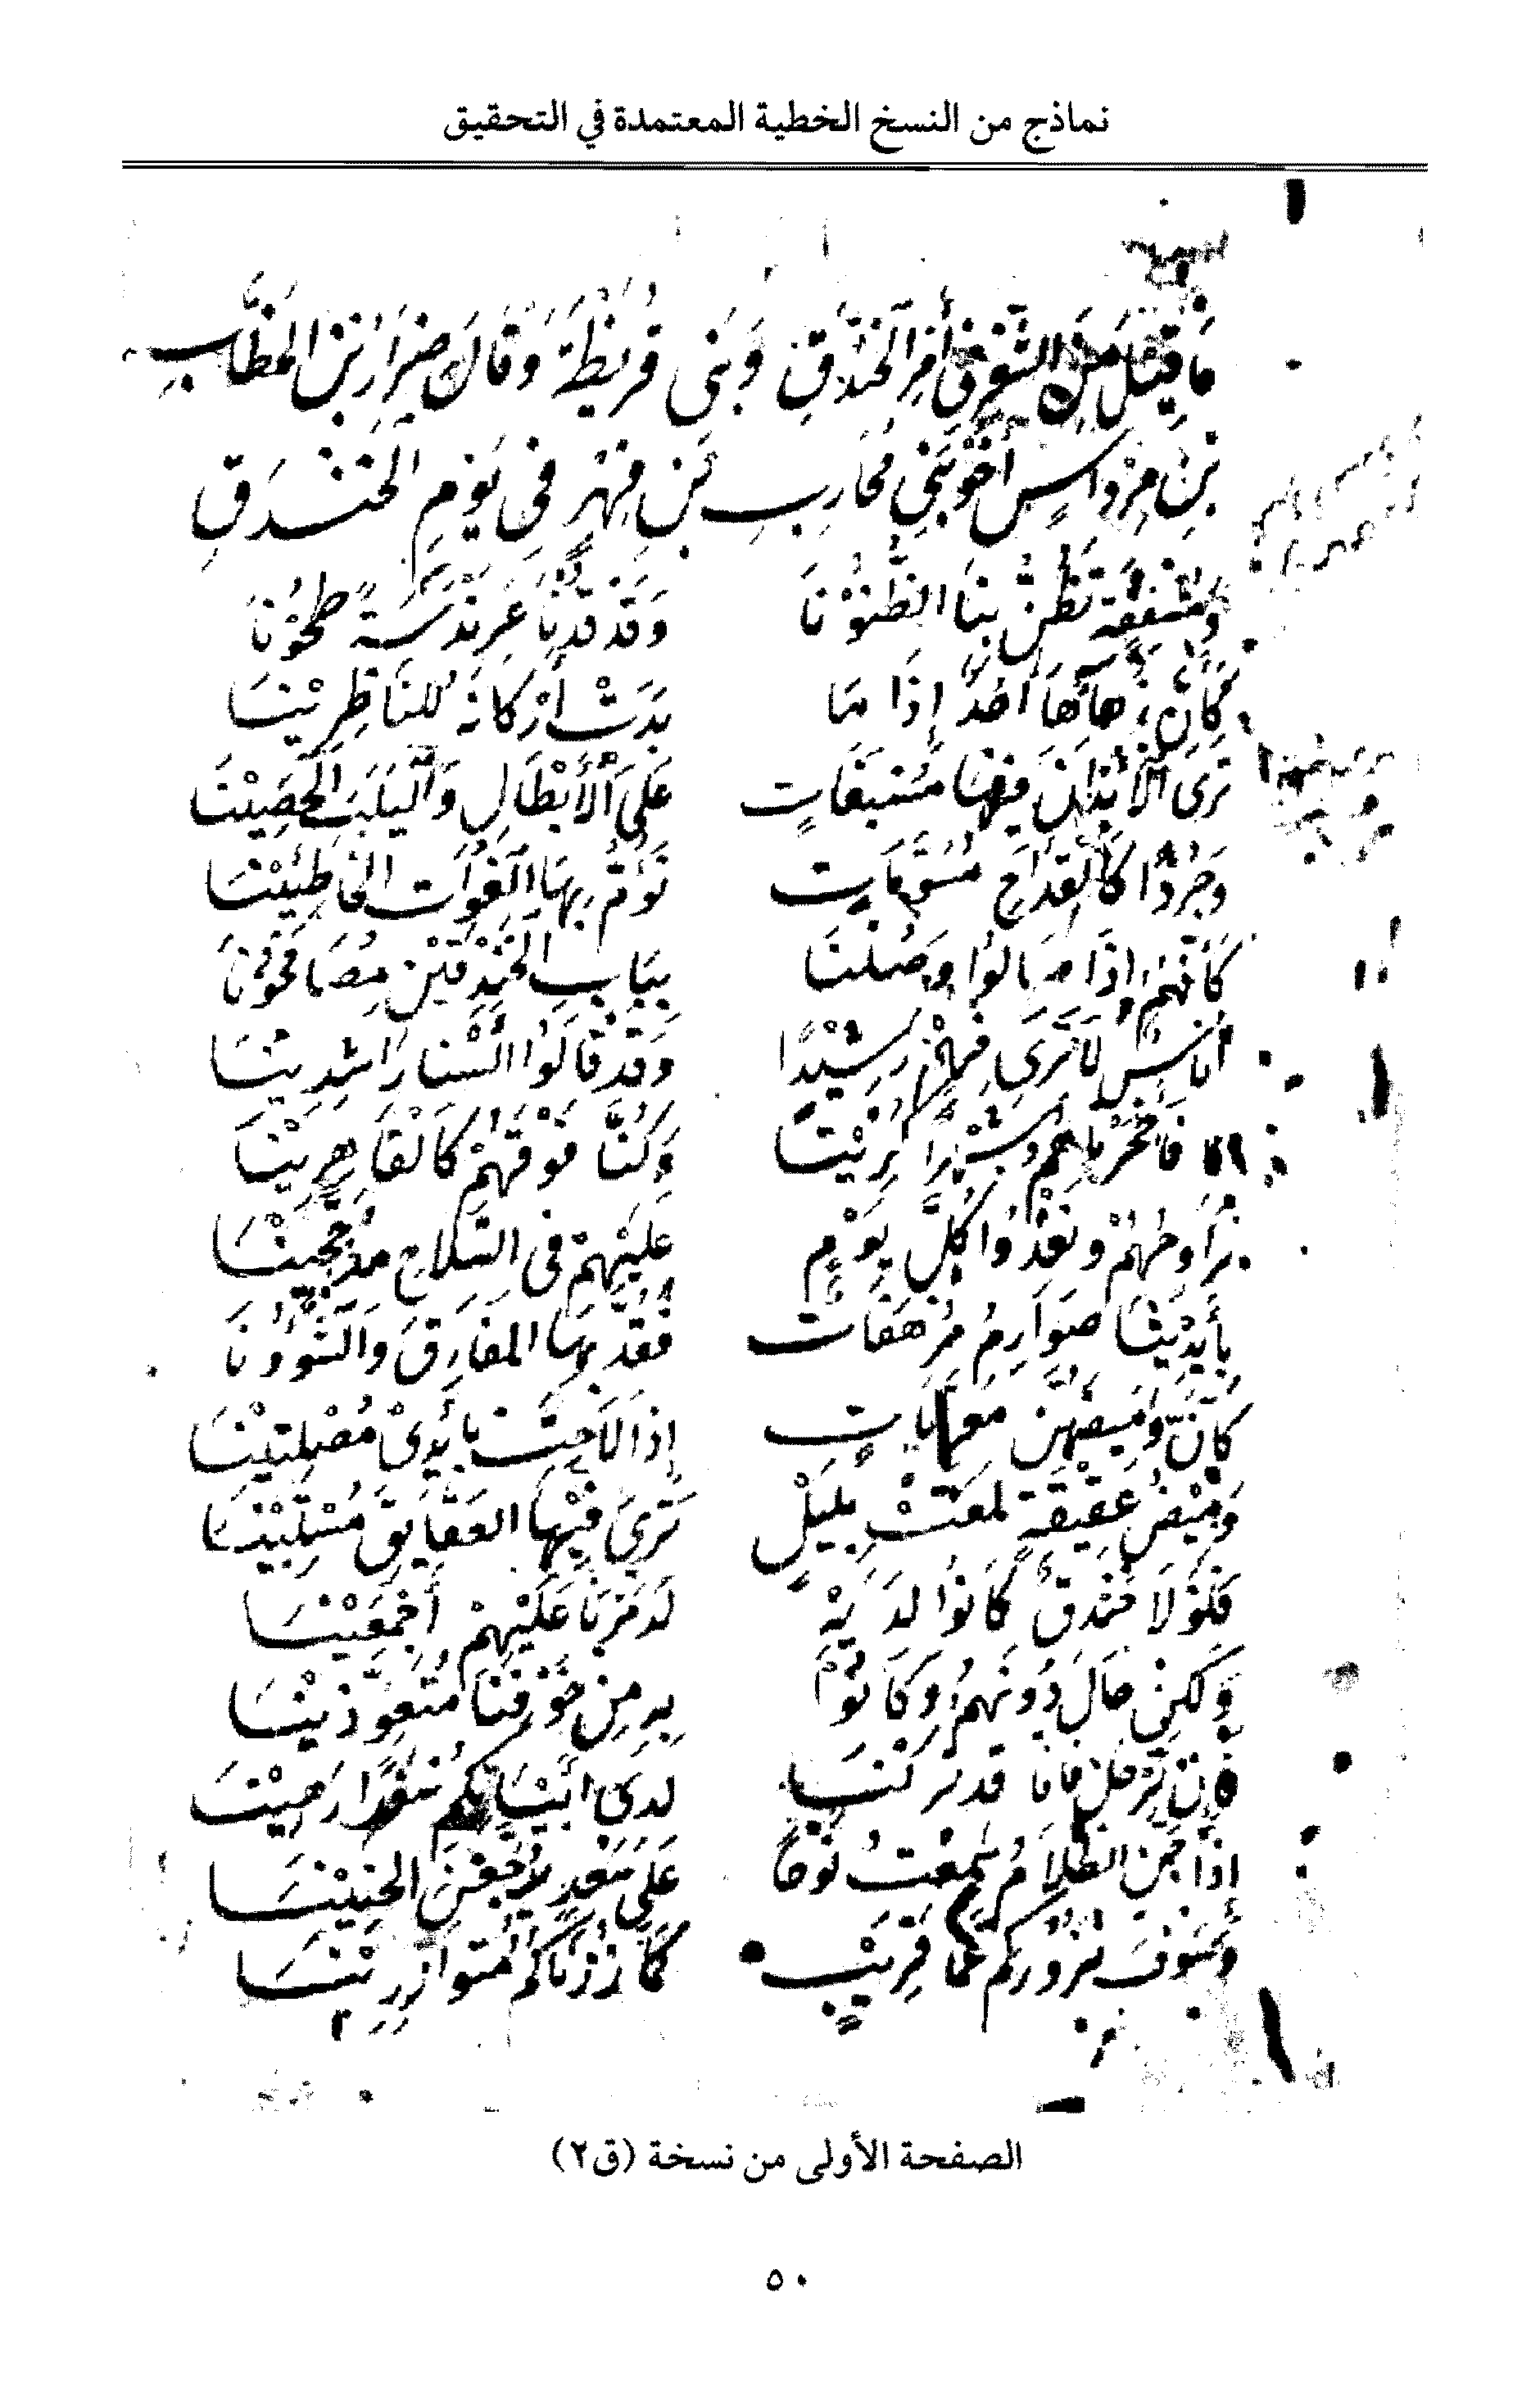 نماذج من النسخ الخطية المعتمدة في التحقيق
مَا قِيلَ مِنَ الشِّعْرِ فِي أَمْرِ الْخَنْدَقِ وَبَنِي قُرَيْظَةَ وَقَالَ ضِرَارُ بْنُ الْخَطَّابِ
بْنِ مِرْدَاسٍ أَخُو بَنِي مُحَارِبِ بْنِ فِهْرٍ فِي يَوْمِ الْخَنْدَقِ
وَمُشْفِقَةٍ تَظُنُّ بِنَا الظُّنُوْنَا وَقَدْ قُدْنَا عَرَنْدَسَةً طَحُوْنَا
كَأَنَّ زُهَآءَهَا أُحُدٌ إِذَا مَا بَدَتْ أَرْكَانُهُ لِلنَّاظِرِيْنَا
تَرَى الْأَبْدَانَ فِيْهَا مُسْبَغَاتٍ عَلَى الْأَبْطَالِ وَالْيَلَبَ الْحَصِيْنَا
وَجُرْدًا كَالْقِدَاحِ مُسَوَّمَاتٍ نَؤُمُّ بِهَا الْغُوَاتَ الْخَاطِئِيْنَا
كَأَنَّهُمُ إِذَا صَالُوا وَصُلْنَا بِبَابِ الْخَنْدَقَيْنِ مُصَافِحُونَا
أُنَاسٌ لَا تَرَى فِيْهِمْ رَشِيْدًا وَقَدْ قَالُوا أَلَسْنَا رَاشِدِيْنَا
فَأَحْجَرْنَاهُمُ وشَهْرًا كَرِيْتًا وَكُنَّا فَوْقَهُمْ كَالْقَاهِرِيْنَا
نُرَاوِحُهُمْ وَنَغْدُوا كُلَّ يَوْمٍ عَلَيْهِمْ فِي السِّلَاحِ مُدَجَّجِيْنَا
بِأَيْدِيْنَا صَوَارِمُ مُرْهَفَاتٌ نَقُدُّ بِهَا الْمَفَارِقَ وَالشُّؤُونَا
كَأَنَّ وَمِيْضَهُنَّ مُعَرَّيَاتٍ إِذَا لَاحَتْ بِأَيْدِيْ مُصْلِتِيْنَا
وَمِيْضُ عَقِيْقَةٍ لَمَعَتْ بِلَيْلٍ تَرَى فِيْهَا الْعَقَايِقَ مُسْتَبِيْنَا
فَلَوْلَا خَنْدَقٌ كَانُوا لَدَيْهِ لَدَمَّرْنَا عَلَيْهِمْ أَجْمَعِيْنَا
وَلَكِنْ حَالَ دُونَهُمُ وَكَانُوْا بِهِ مِنْ خَوْفِنَا مُتَعَوِّذِيْنَا
فَإِنْ نَرْحَلْ فَإِنَّا قَدْ تَرَكْنَا لَدَى أَبْيَاتِكُمْ سَعْدًا رَهِيْنَا
إِذَا جَنَّ الظَّلَامُ سَمِعْتَ نَوْحًا عَلَى سَعْدٍ يُرَجِّعْنَ الْحَنِيْنَا
وَسَوْفَ نَزُورُكُمْ عَمَّا قَرِيْبٍ كَمَا زُرْنَاكُمُ مُتَوَازِرِيْنَا
الصفحة الأولى من نسخة (ق٢)
٥٠